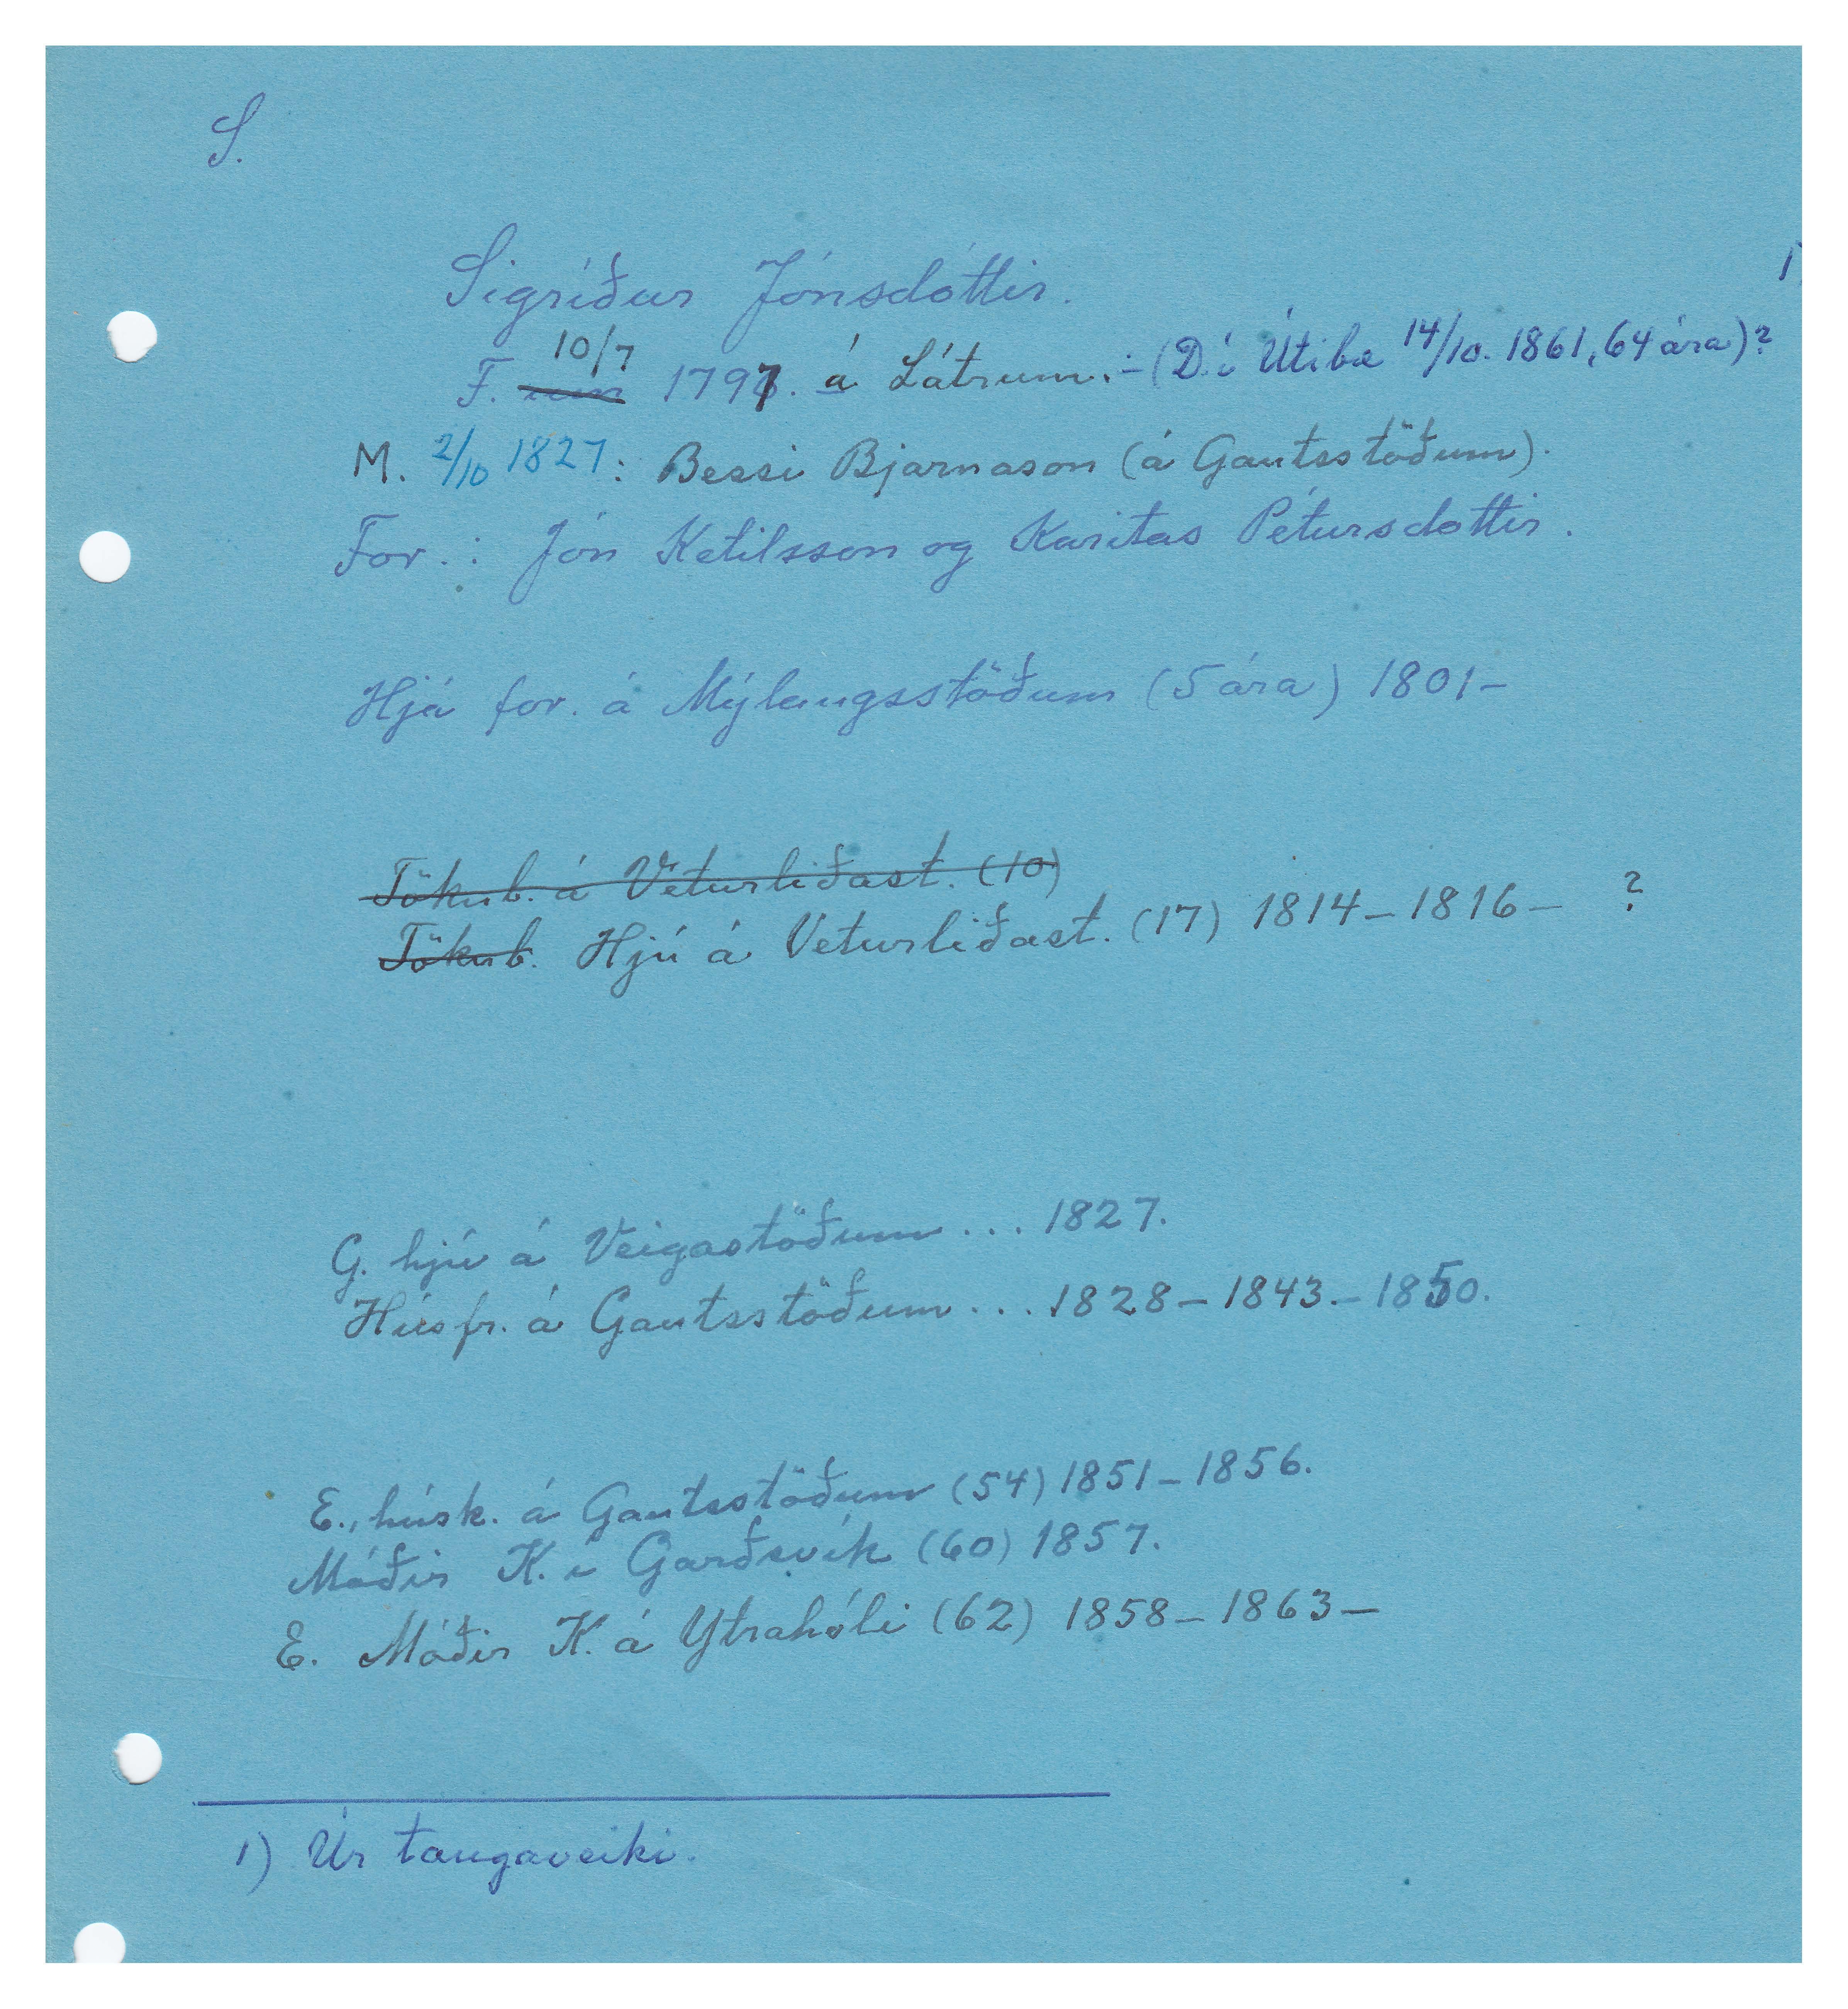 S.
Sigríður Jónsdóttir.
1
10/7
F. um 1797. á Látrum. - (D. í Útibæ 14/10. 1861, 64 ára)?
M. 2/10 1827: Bessi Bjarnason (á Gautsstöðum).
For.: Jón Ketilsson og Karitas Pétursdóttir.
Hjá for. á Mýlaugsstöðum (5 ára) 1801-
Tökub. á Veturliðast. (10)
Tökub. Hjú á Veturliðast. (17) 1814-1816- ?
G. hjú á Veigastöðum ... 1827.
Húsfr. á Gautsstöðum ... 1828-1843.-1850.
E., húsk. á Gautsstöðum (54) 1851-1856.
Móðir K. í Garðsvík (60) 1857.
E. Móðir K. á Ytrahóli (62) 1858-1863-
1) Úr taugaveiki.